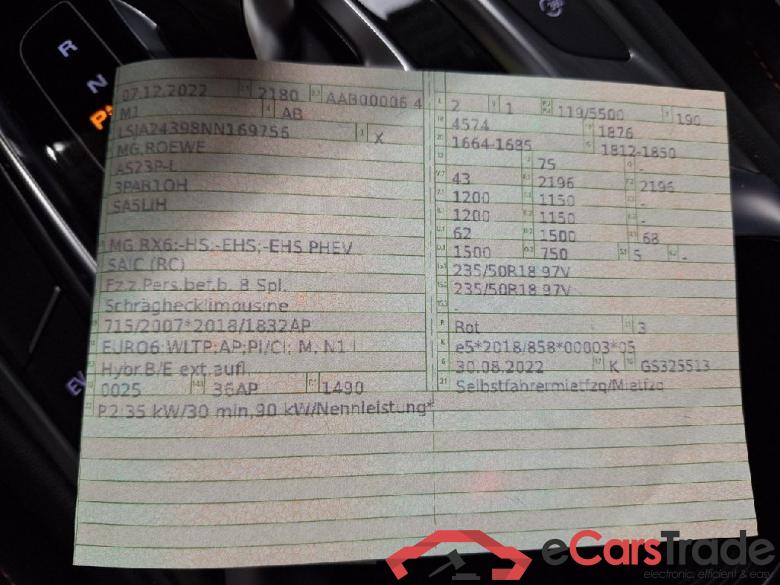 R
N
P
EV
07.12.2022 2180 AAB00006 4
M1 4 AB
LSJA24398NN169756 X
MG ROEWE
AS23P-L
3PAB1OH
SA5LIH
MG RX6;-HS;-EHS;-EHS PHEV
SAIC (RC)
Fz.z.Pers.bef.b. 8 Spl.
Schräghecklimousine
715/2007*2018/1832AP
EURO6 WLTP;AP;PI/CI; M, N1 I
Hybr.B/E ext.aufl.
0025 36AP 1490
P2:35 kW/30 min,90 kW/Nennleistung*
2 1 119/5500 190
4574 1876
1664-1685 1812-1850
75 -
43 2196 2196
1200 1150 -
1200 1150 -
62 1500 68
1500 750 5 -
235/50R18 97V
235/50R18 97V
-
Rot 3
e5*2018/858*00003*05
30.08.2022 K GS325513
Selbstfahrermietfzg/Mietfzg
eCarsTrade
electronic, efficient & easy